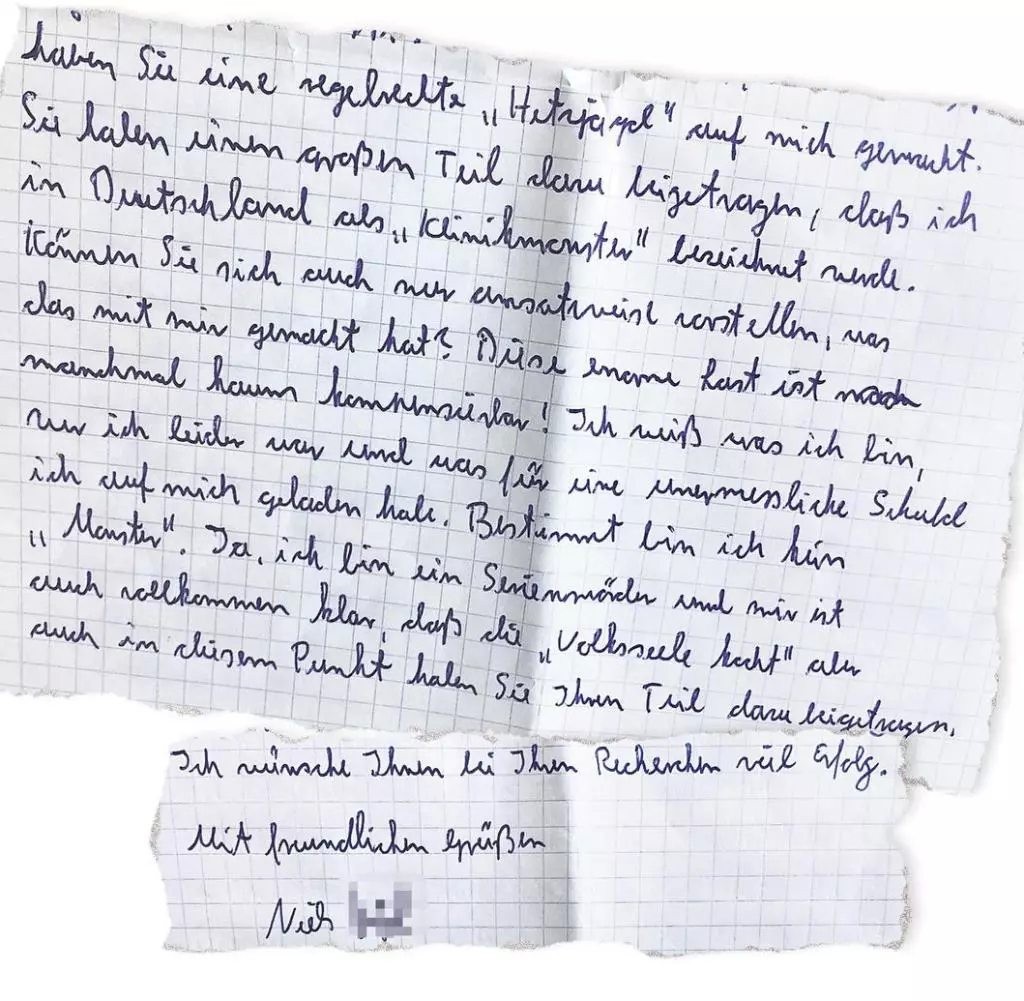 haben Sie eine regelrechte „Hetzjagd" auf mich gemacht.
Sie haben einen großen Teil dazu beigetragen, daß ich
in Deutschland als „Klinikmonster" bezeichnet werde.
Können Sie sich auch nur ansatzweise vorstellen, was
das mit mir gemacht hat? Diese enorme Last ist
manchmal kaum kompensierbar! Ich weiß was ich bin,
wer ich leider war und was für eine unermessliche Schuld
ich auf mich geladen habe. Bestimmt bin ich kein
„Monster". Ja, ich bin ein Serienmörder und mir ist
auch vollkommen klar, daß die „Volksseele kocht" aber
auch in diesem Punkt haben Sie Ihren Teil dazu beigetragen.
Ich wünsche Ihnen bei Ihren Recherchen viel Erfolg.
Mit freundlichen Grüßen
Niels